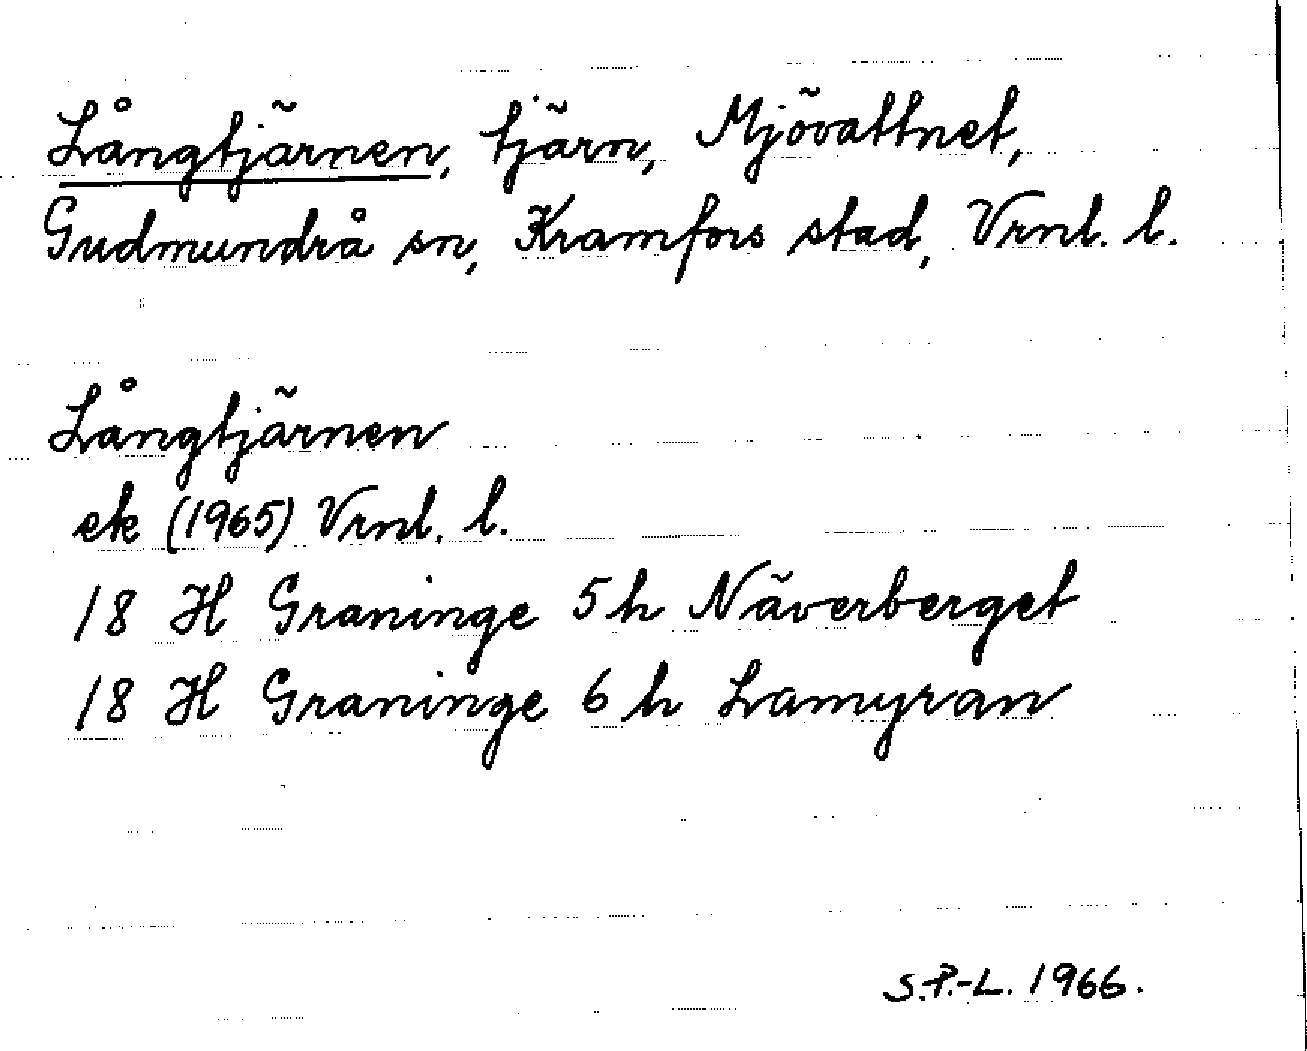 Långtjärnen, tjärn, Mjövattnet,
Gudmundrå sn, Kramfors stad, Vrnl. l.
Långtjärnen
ek (1965) Vrnl. l.
18 H Graninge 5 h Näverberget
18 H Graninge 6 h Lamyran
S.-P.-L. 1966.